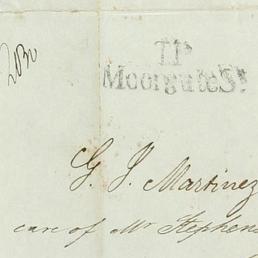 T.P
Moorgate St
G. J. Martinez
care of Mr Stephens